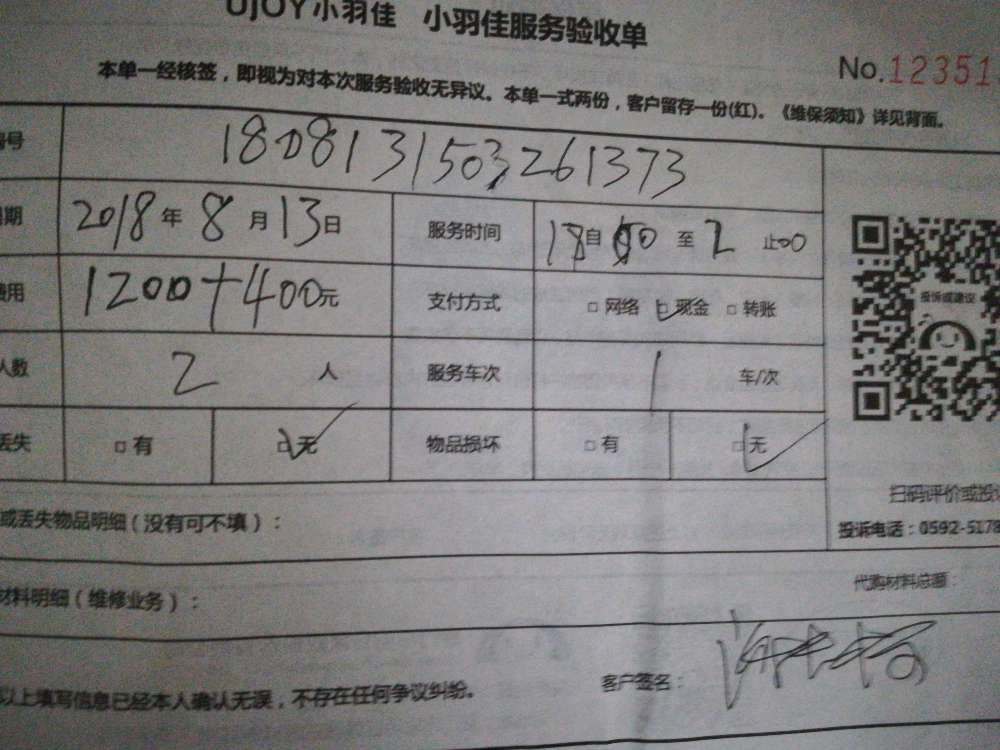 UJOY小羽佳 小羽佳服务验收单
No.12351
本单一经核签，即视为对本次服务验收无异议。本单一式两份，客户留存一份(红)。《维保须知》详见背面。
号 1808131503261373
期 2018年8月13日 服务时间 自 至 止
费用 1200+400元 支付方式 □网络 □现金 □转账
人数 2 人 服务车次 1 车/次
丢失 □有 □无 物品损坏 □有 □无
投诉或建议
扫码评价或投
或丢失物品明细（没有可不填）：
投诉电话：0592-5178
材料明细（维修业务）：
代购材料总额：
以上填写信息已经本人确认无误，不存在任何争议纠纷。
客户签名：